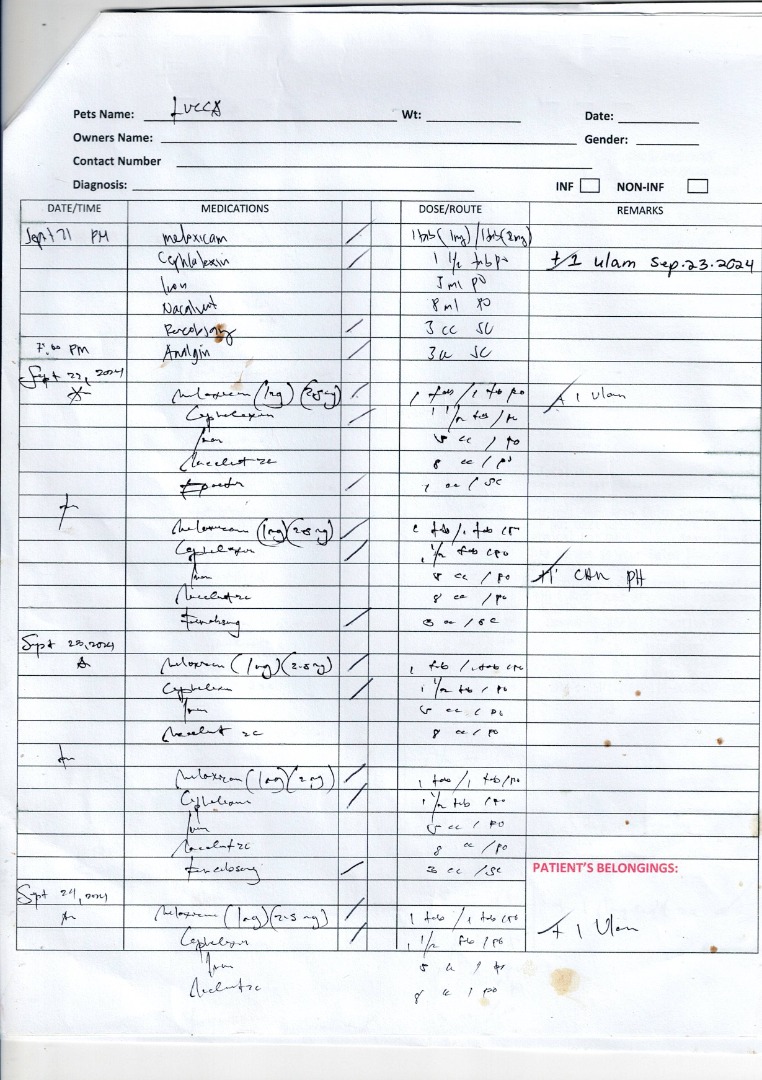 Pets Name: Lucca Wt: Date:
Owners Name: Gender:
Contact Number
Diagnosis: INF NON-INF
DATE/TIME MEDICATIONS DOSE/ROUTE REMARKS
Sept 21 PM meloxicam / 1 tab (1mg) / 1 tab (2mg)
Cephalexin / 1 1/2 tab po +1 ulam Sep.23.2024
Iron 5 ml po
Nacalvit 8 ml po
/ 3 cc SC
7:00 PM Analgin / 3 cc SC
Sept 22, 2024
Meloxicam (1mg) (2.5mg) / 1 tab / 1 tab po +1 ulam
Cephalexin / 1 1/2 tab / po
Iron 5 cc / po
8 cc / po
/ cc / SC
Meloxicam (1mg) (2.5mg) / 1 tab / 1 tab
Cephalexin / 1 1/2 tab po
Iron 5 cc / po +1 CAN PH
8 cc / po
/ 3 cc / SC
Sept 23, 2024
Meloxicam (1mg) (2.5mg) / 1 tab / 1 tab po
Cephalexin / 1 1/2 tab / po
Iron 5 cc / po
8 cc / po
Meloxicam (1mg) (2mg) / 1 tab / 1 tab / po
Cephalexin / 1 1/2 tab / po
Iron 5 cc / po
8 cc / po
/ 3 cc / SC PATIENT'S BELONGINGS:
Sept 24, 2024
Meloxicam (1mg) (2.5mg) / 1 tab / 1 tab po +1 Ulam
Cephalexin / 1 1/2 tab / po
Iron 5 cc / po
8 cc / po